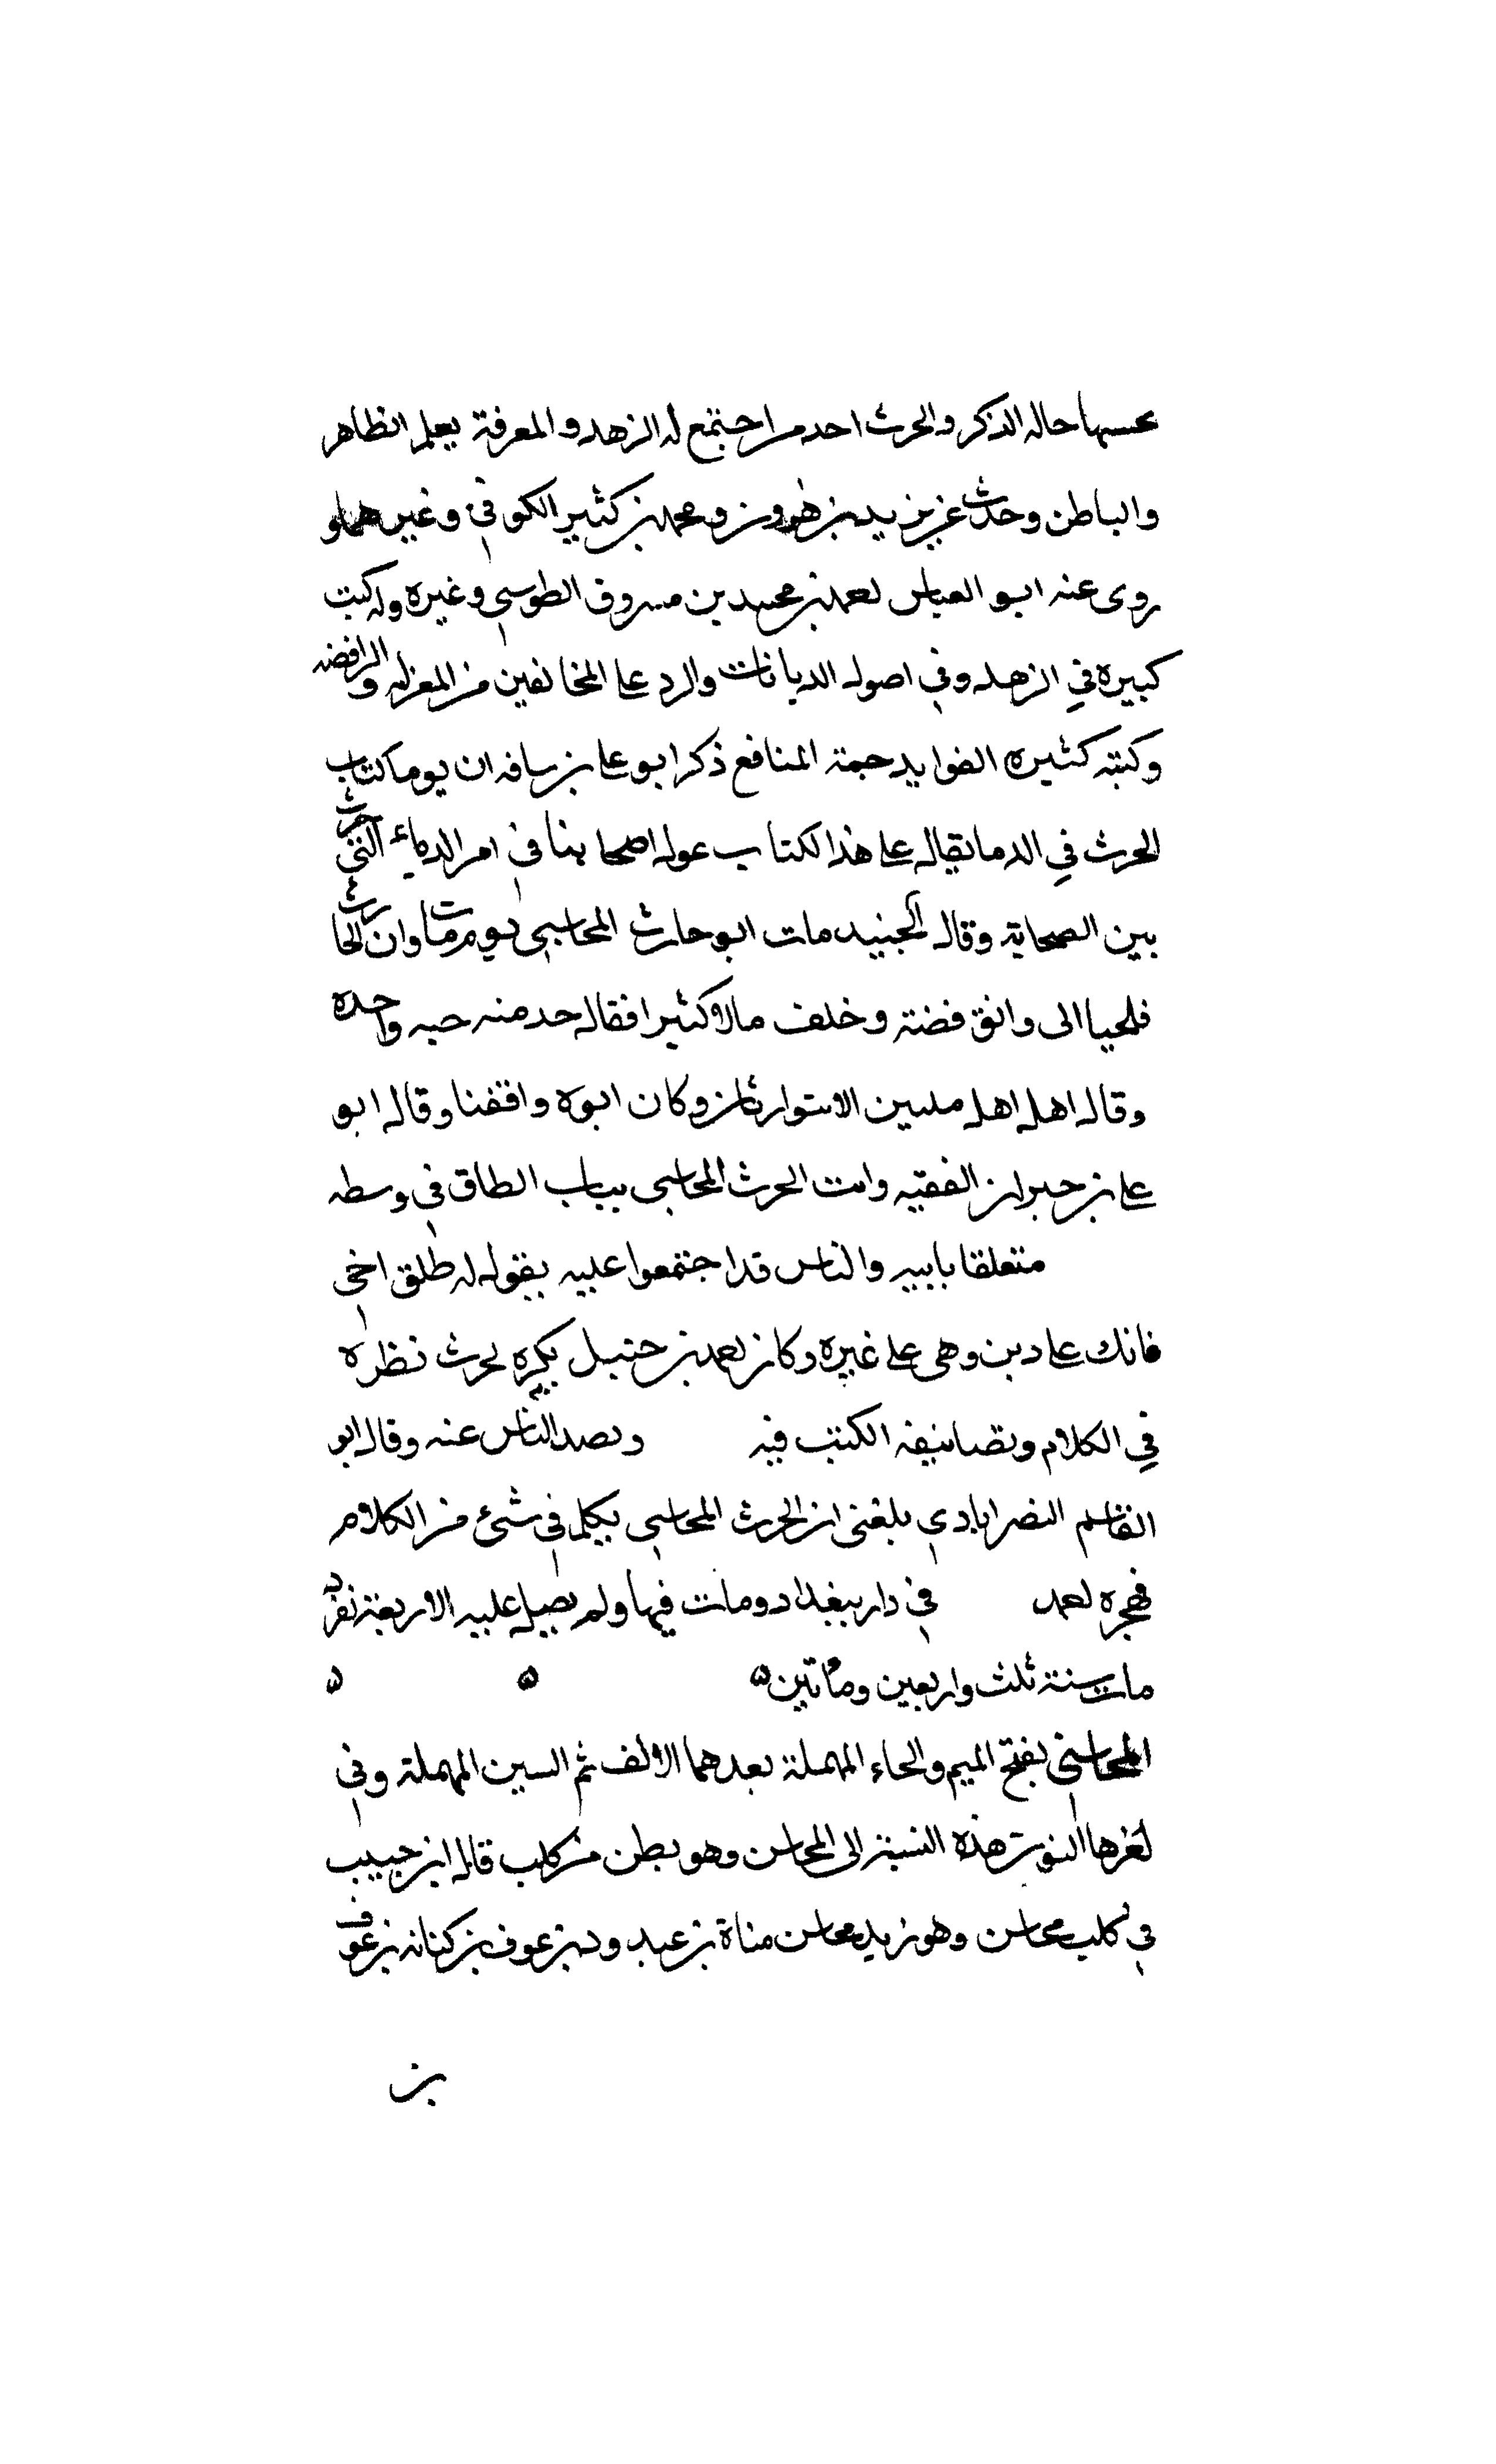 يحسبها حاله الذكر والحرث احد من اجتمع له الزهد والمعرفة بعلم الظاهر
والباطن وحدث عن يزيد بن هرون و محمد بن كثير الكوفي وغيرهما و
روى عنه ابو العباس احمد بن محمد بن مسروق الطوسي وغيره وله كتب
كبيره في الزهد وفي اصول الديانات والرد على المخالفين من المعتزله والرافضه
وكتبه كثيره الفوايد جمة المنافع ذكر ابو على بن سافه ان يوما كتاب
الحرث في الدما فقال على هذا لكتاب عول اصحابنا في امر الدماء التي جرت
بين الصحابة وقال الجنيد مات ابو حارث المحاسبي يوم مات وان الحارث
الى دانق فضة وخلف مالا كثيرا فقال حد منه حبه واحده
وقال اهل اهل ملتين لا يتوارثان وكان ابوه واقفنا وقال ابو
على بن خيران الفقيه رايت الحرث المحاسبي بباب الطاق في وسطه
متعلقا بابيه والناس قد اجتمعوا عليه يقول له طلق اخي
فانك على دين وهى على غيره وكان احمد بن حنبل يكره لحرث نظره
في الكلام وتصانيفه الكتب فيه ويصد الناس عنه وقال ابو
القاسم النصراباذي بلغني ان الحرث المحاسبي يكلم في شئ من الكلام
فهجره احمد في دار ببغداد ومات فيها ولم يصل عليه الا اربعة نفر و
مات سنة ثلث واربعين ومأتين ه ه ه
المحاسني بفتح الميم والحاء المهملة بعدهما الالف ثم السين المهملة وفي
اخرها النون هذه النسبة الى المحاسن وهو بطن من كلب قال ابن حبيب
في كلب محاسن وهو زيد محاسن مناة بن عبد ود بن عوف بن كنانه بن عوف
بن